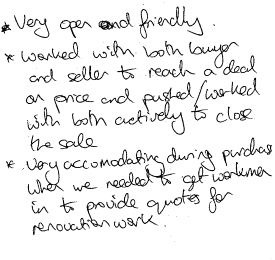 * Very open and friendly.
* Worked with both buyer
and seller to reach a deal
on price and pushed/worked
with both actively to close
the sale
* Very accomodating during purchase
when we needed to get workmen
in to provide quotes for
renovation work.